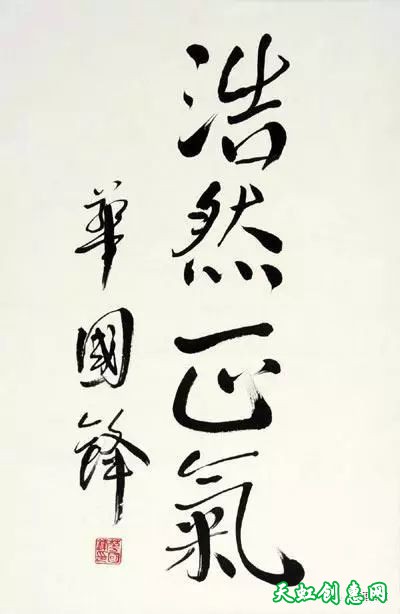 浩然正氣
華國鋒
天虹创惠网